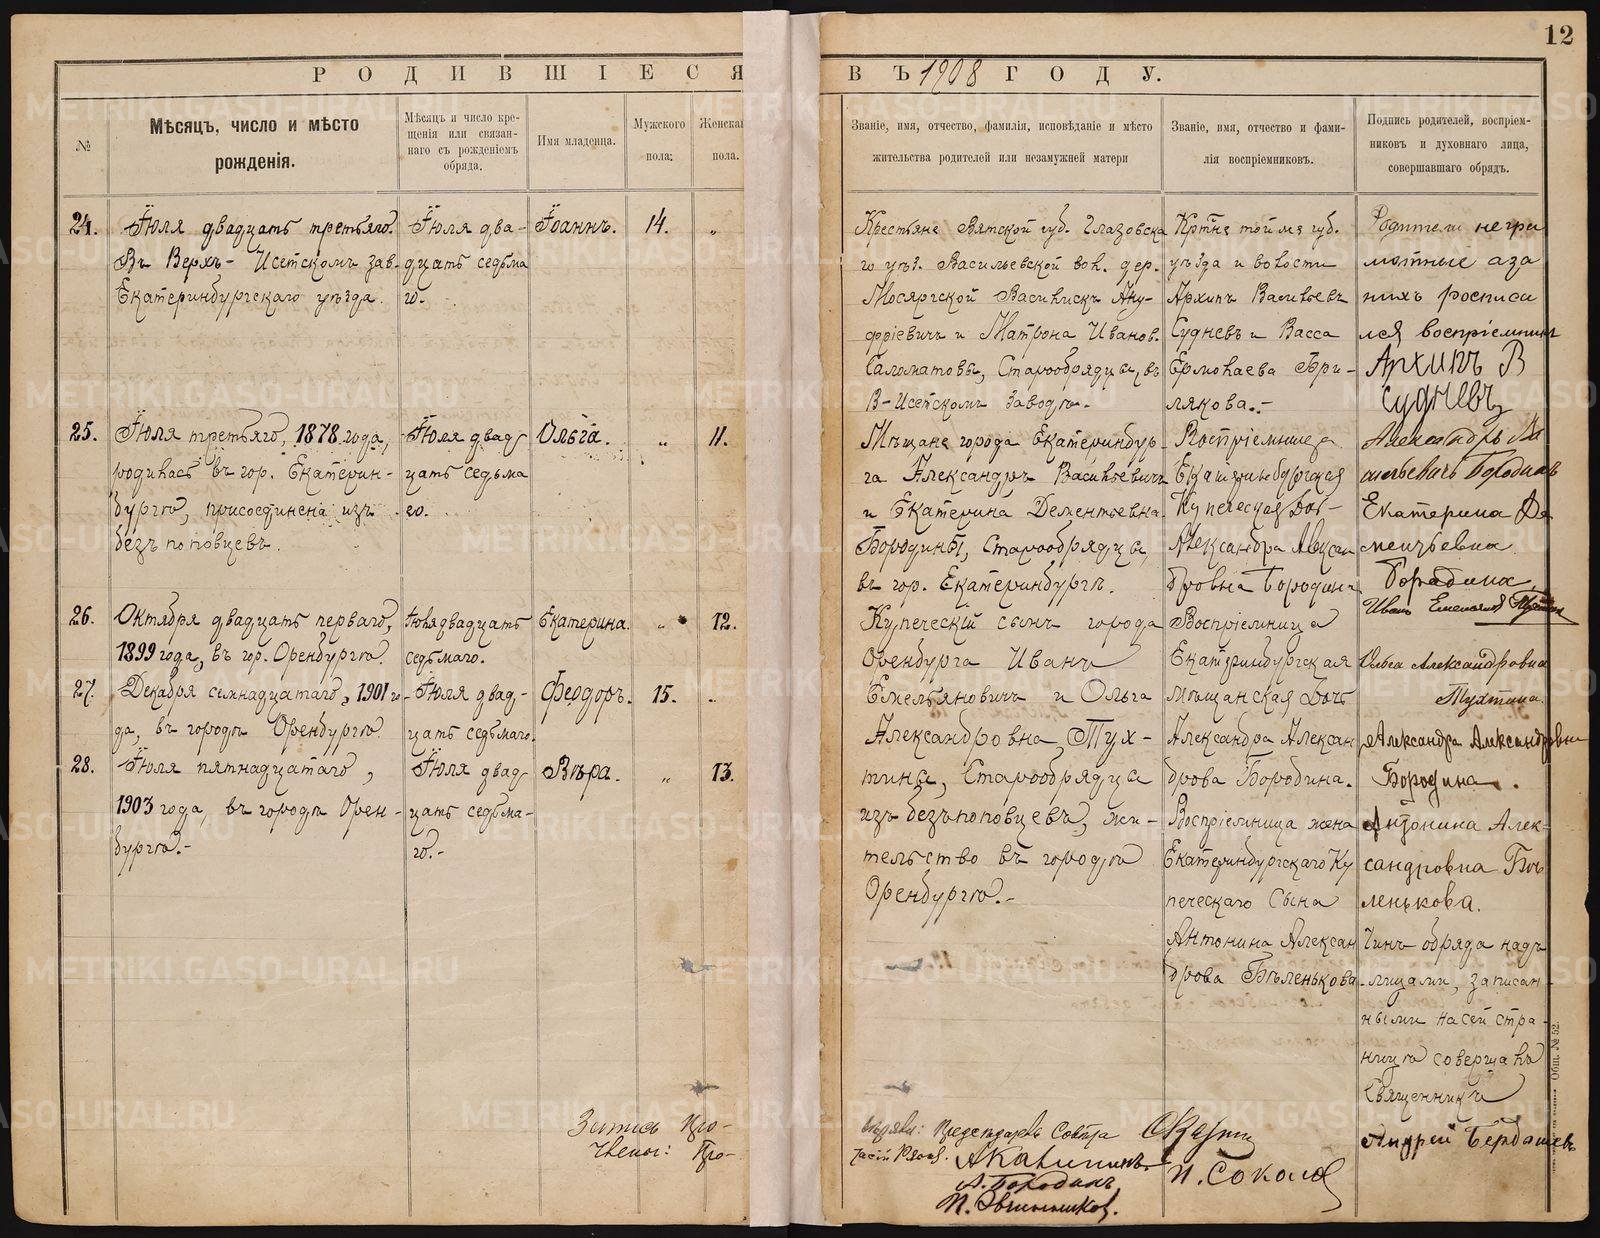 12
РОДИВШІЕСЯ ВЪ 1908 ГОДУ.
№
Мѣсяцъ, число и мѣсто
рожденія.
Мѣсяцъ и число кре-
щенія или связан-
наго съ рожденіемъ
обряда.
Имя младенца.
Мужского
пола;
Женска
пола.
Званіе, имя, отчество, фамилія, исповѣданіе и мѣсто
жительства родителей или незамужней матери
Званіе, имя, отчество и фами-
лія воспріемниковъ.
Подпись родителей, воспріем-
никовъ и духовнаго лица,
совершавшаго обрядъ.
24.
Іюля двадцать третьяго.
Въ Верхъ-Исетскомъ зав.
Екатеринбургскаго уѣзда.
Іюля два-
дцать седьма
го.
Іоаннъ.
14.
„
Крестьяне Вятской губ. Глазовска
го уѣз. Васильевской вол. дер.
Мосяргской Ану-
фріевичъ и Матрона Иванов.
Саломатовы, Старообрядцы, въ
В-Исетскомъ заводѣ.-
Крт҃не той же губ.
уѣзда и волости
Архипъ Васильевъ
Судневъ и Васса
Ермолаева Бри-
лякова.-
Родители негра
мотные а за
нихъ росписа
лся воспріемникъ
Архипъ В
Судневъ
25.
Іюля третьяго, 1878 года,
родилась въ гор. Екатерин-
бургѣ, присоединена изъ
безпоповцевъ.
Іюля двад
цать седьма
го.
Ольга.
„
11.
Мѣщане города Екатеринбур-
га Александръ Васильевичъ
и Екатерина Дементьевна
Бородины, Старообрядцы,
въ гор. Екатеринбургѣ.
Воспріемница
Екатеринбургская
Купеческая Доч-
Александра Алексан
дровна Бородина
Александръ Ва
сильевичъ Бородинъ
Екатерина Де
ментьевна
Бородина
26.
Октября двадцать перваго,
1899 года, въ гор. Оренбургѣ.
Іюля двадцать
седьмаго.
Екатерина.
„
12.
Купеческій сынъ города
Оренбурга Иванъ
Емельяновичъ и Ольга
Александровна, Тух-
тины, Старообрядцы
изъ безъпоповцевъ, жи-
тельство въ городѣ
Оренбургѣ.-
Воспріемница
Екатеринбургская
мѣщанская Дочь
Александра Алексан
дрова Бородина.
Иванъ Емельяновъ Тухтинъ
Ольга Александровна
Тухтина.
Александра Александровна
Бородина.
27.
Декабря семнадцатаго, 1901 го-
да, въ городѣ Оренбургѣ.
Іюля двад-
цать седьмаго.
Феодоръ.
15.
„
28.
Іюля пятнадцатаго,
1903 года, въ городѣ Орен-
бургѣ.-
Іюля двад-
цать седьма-
го.-
Вѣра.
„
13.
Воспріемница жена
Екатеринбургскаго Ку
печескаго Сына
Антонина Алексан
дрова Бѣленькова.
Антонина Алек-
сандровна Бѣ
ленькова.
Чинъ обряда надъ
лицами, записан-
ными на сей стра-
ницѣ совершалъ
Священникъ
Андрей Бердышевъ
Запись про-
Члены:
Предсѣдатель Совѣта
А. Калининъ
А. Бородинъ
П. Овчинниковъ.
П. Соколовъ
Общ. № 52.
METRIKI.GASO-URAL.RU